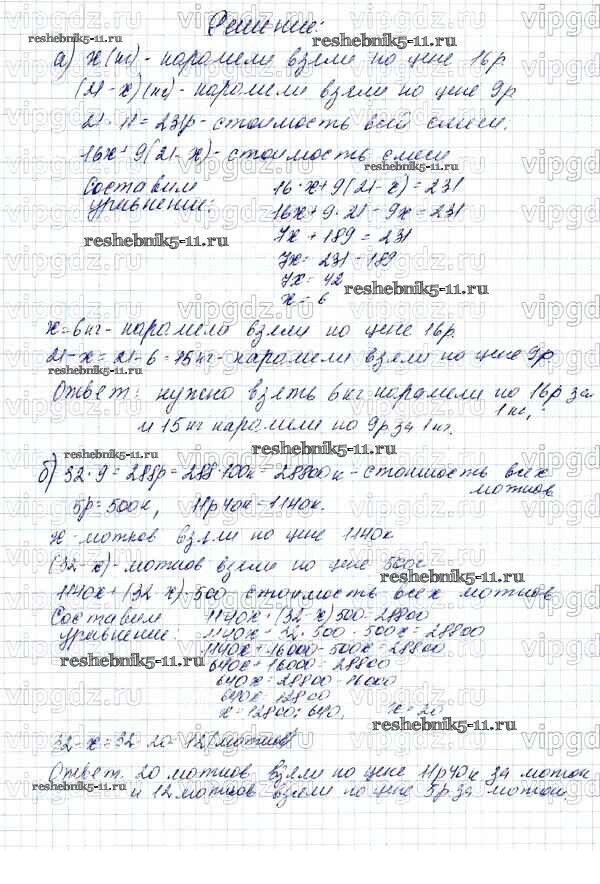 Решение:
а) х (кг) - карамели взяли по цене 16р
(21 - х) (кг) - карамели взяли по цене 9р
21 · 11 = 231р - стоимость всей смеси.
16х + 9(21 - х) - стоимость смеси
Составим уравнение:
16 · х + 9(21 - х) = 231
16х + 9 · 21 - 9х = 231
7х + 189 = 231
7х = 231 - 189
7х = 42
х = 6
х = 6 кг - карамели взяли по цене 16р.
21 - х = 21 - 6 = 15 кг - карамели взяли по цене 9р
Ответ: нужно взять 6 кг карамели по 16р за 1 кг,
и 15 кг карамели по 9р за 1 кг.
б) 32 · 9 = 288р = 288 · 100к = 28800к - стоимость всех мотков
5р = 500к, 11р40к = 1140к.
х - мотков взяли по цене 1140к
(32 - х) - мотков взяли по цене 500к
1140х + (32 - х) · 500 стоимость всех мотков
Составим уравнение:
1140х + (32 - х) 500 = 28800
1140х + 32 · 500 - 500х = 28800
1140х + 16000 - 500х = 28800
640х + 16000 = 28800
640х = 28800 - 16000
640х = 12800
х = 12800 : 640, х = 20
32 - х = 32 - 20 = 12 (мотков)
Ответ. 20 мотков взяли по цене 11р40к за моток
и 12 мотков взяли по цене 5р за моток.
reshebnik5-11.ru
vipgdz.ru